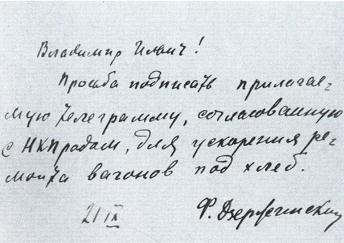 Владимир Ильич!
Просьба подписать прилагае-
мую телеграмму, согласованную
с НКПродом, для ускорения ре-
монта вагонов под хлеб.
21 IX Ф. Дзержинский